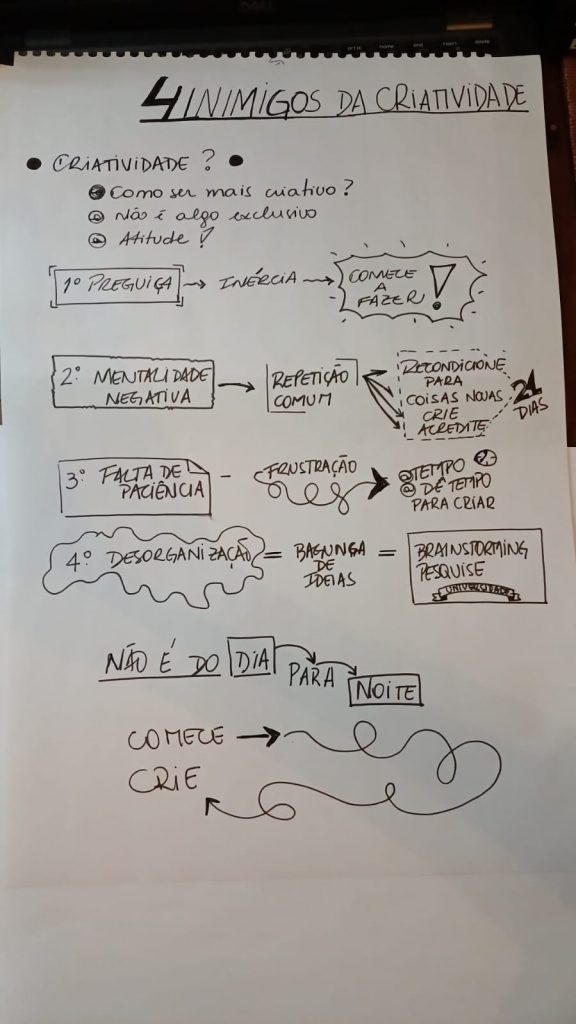 4 INIMIGOS DA CRIATIVIDADE
CRIATIVIDADE?
Como ser mais criativo?
Não é algo exclusivo
Atitude!
1º PREGUIÇA → INÉRCIA → COMECE
A
FAZER!
2º MENTALIDADE
NEGATIVA → REPETIÇÃO
COMUM
RECONDICIONE
PARA
COISAS NOVAS
CRIE
ACREDITE
21
DIAS
3º FALTA DE
PACIÊNCIA - FRUSTRAÇÃO
TEMPO
DÊ TEMPO
PARA CRIAR
4º DESORGANIZAÇÃO = BAGUNÇA
DE
IDEIAS = BRAINSTORMING
PESQUISE
NÃO É DO DIA
PARA
NOITE
COMECE →
CRIE